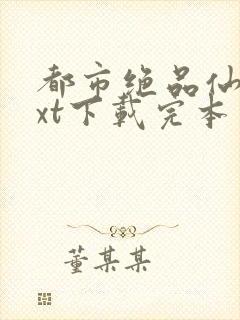 都市绝品仙
xt下载完本
董某某